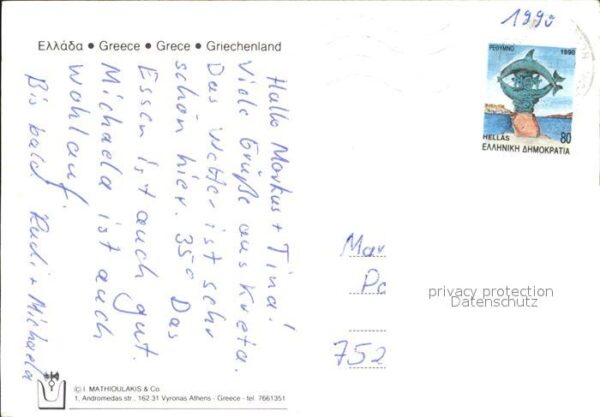 1990
Ελλάδα • Greece • Grece • Griechenland
Hallo Markus + Tina!
Viele Grüße aus Kreta.
Das Wetter ist sehr
schön hier. 35° Das
Essen ist auch gut.
Michaela ist auch
wohlauf.
Bis bald Rudi + Michaela
ΡΕΘΥΜΝΟ 1990
HELLAS 80
ΕΛΛΗΝΙΚΗ ΔΗΜΟΚΡΑΤΙΑ
Mar
Pc
752
privacy protection
Datenschutz
© I. MATHIOULAKIS & Co.
1, Andromedas str., 162 31 Vyronas Athens - Greece - tel. 7661351